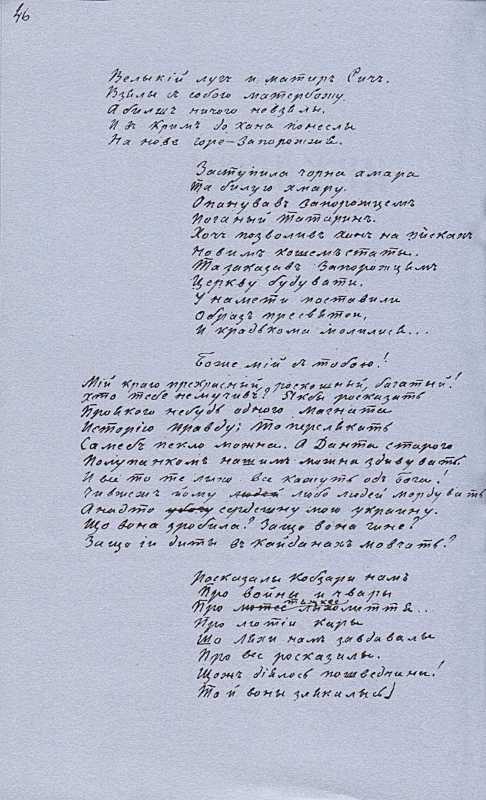 46
Велыкій лугъ и матирь Сичь.
Взялы съ собою матер божу
А билшъ ничого невзялы.
И въ Кримъ до хана понеслы
На нове горе-Запорожже.
Заступила чорна хмара
Та билую хмару.
Опанувавъ запорожцемъ
Поганый татаринъ.
Хочъ позволивъ ханъ на пискахъ
Новимъ кошемъ стати.
Та заказавъ запорожцямъ
Церкву будувати.
У намети поставили
Образъ пресвятои,
И крадькома молились...
Боже мій съ тобою!
Мій краю прекрасный, роскошный, багатый!
Хто тебе немучивъ? Якбы росказать
Про якого небудь одного магната
Исторію правду; то перелякать
Саме бъ пекло можна. А Данта старого
Полупанкомъ нашимъ можна здивувать.
И все то те лихо. все кажуть одъ бога!
Чи в жежъ йому любо людей мордувать
А надто сердешну мою украину.
Що вона зробила? За що вона гине?
За що іи диты въ кайданахъ мовчать?
Росказалы кобзари намъ
Про войны и чвары
Про тяжкее лихолиття...
Про лютіи кары
Що Ляхи намъ завдавалы
Про все росказалы.
Щожъ діялось по шведчини!
То й воны злякались